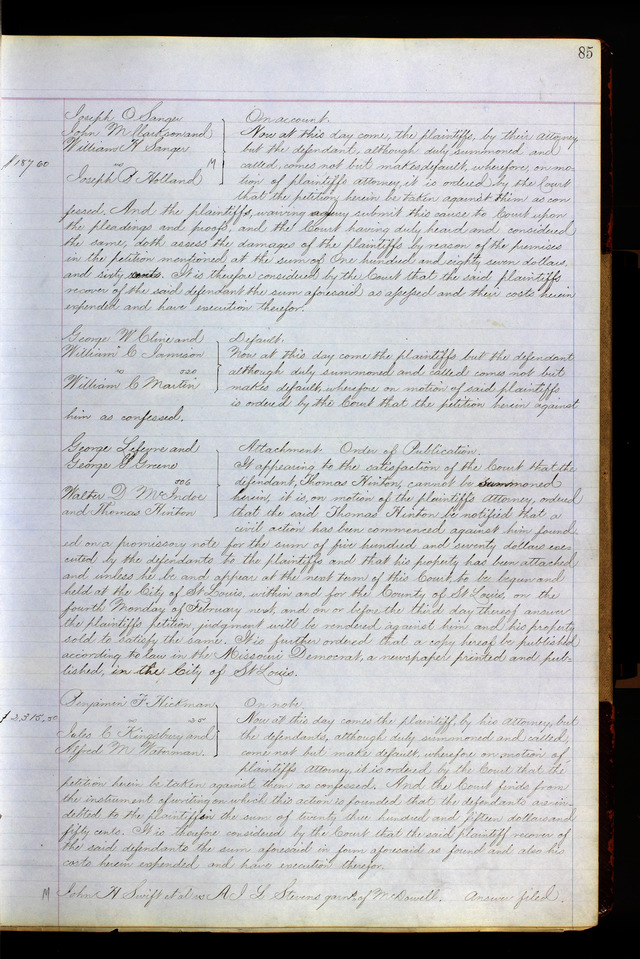 85
Joseph O Sanger On account.
John M Clarkson and Now at this day come, the plaintiffs, by their attorney,
William H Sanger but the defendant, although duly summoned and
$187.60 vs M called, comes not but makes default, wherefore, on mo-
Joseph P Holland tion of plaintiffs attorney, it is ordered by the Court
that the petition herein be taken against them as con
fessed. And the plaintiffs, waiving a jury submit this cause to Court upon
the pleadings and proofs, and the Court having duly heard and considered
the same, doth assess the damages of the plaintiffs by reason of the premises
in the petition mentioned at the sum of One hundred and eighty seven dollars,
and sixty cents. It is therefore considered by the Court that the said plaintiffs
recover of the said defendant the sum aforesaid as assessed and their costs herein
expended and have execution therefor.
George W Cline and Default.
William C Jamison Now at this day come the plaintiffs but the defendant
vs although duly summoned and called comes not but
William C Martin makes default, wherefore on motion of said plaintiffs
is ordered by the Court that the petition herein against
him as confessed.
George Lefevre and Attachment Order of Publication.
George G Greene It appearing to the satisfaction of the Court that the
vs defendant, Thomas Hinton, cannot be summoned
Walter D McIndoe herein, it is, on motion of the plaintiffs Attorney, ordered
and Thomas Hinton that the said Thomas Hinton be notified that a
civil action has been commenced against him found
ed on a promissory note for the sum of five hundred and seventy dollars exe-
cuted by the defendants to the plaintiffs and that his property has been attached
and unless he be and appear at the next term of this Court, to be begun and
held at the City of St Louis, within and for the County of St Louis, on the
fourth Monday of February next, and on or before the third day thereof answer
the plaintiffs petition, judgment will be rendered against him and his property
sold to satisfy the same. It is further ordered that a copy hereof be published
according to law in the Missouri Democrat, a newspaper printed and pub-
lished, in the City of St Louis.
Benjamin F Hickman On note.
$2315.50 vs Now at this day comes the plaintiff by his Attorney, but
Jules C Kingsbury and the defendants, although duly summoned and called,
Alfred M Waterman. come not but make default, wherefore on motion of
plaintiffs Attorney it is ordered by the Court that the
petition herein be taken against them as confessed. And the Court finds from
the instrument of writing on which this action is founded that the defendants are in-
debted to the plaintiff in the sum of twenty three hundred and fifteen dollars and
fifty cents. It is therefore considered by the Court that the said plaintiff recover of
the said defendants the sum aforesaid in form aforesaid as found and also his
costs herein expended and have execution therefor.
M John H Swift et al vs A J L Stevens garn. of McDowell. Answer filed.